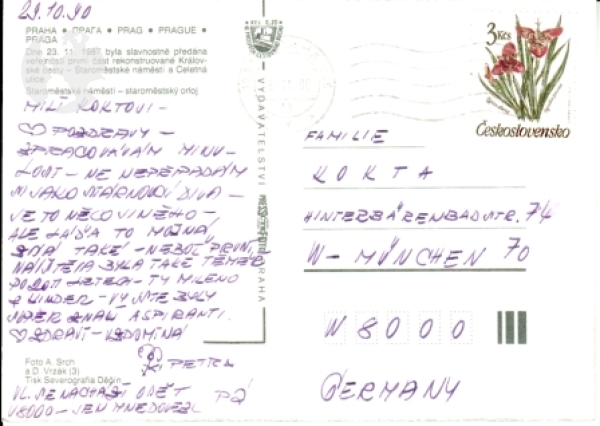 29.10.90
PRAHA • ПРАГА • PRAG • PRAGUE •
PRAGA
Dne 23. 11. 1987 byla slavnostně předána
veřejnosti první část rekonstruované Králov-
ské cesty – Staroměstské náměstí a Celetná
ulice.
Staroměstské náměstí – staroměstský orloj
MILÍ KOKTOVI -
POZDRAVY -
ZPRACOVÁVÁM MINU-
LOST - NE NEPŘEPADÁM
JAKO
JE TO NĚCO JINÉHO -
ALE TO MOŽNÁ
TAKÉ - NEBOŤ PRVNÍ
BYLA TAKÉ TÉMĚŘ
PO 20TI LETECH - TY MILENO
KINDER - VY JSTE BYLY
SUPER ASPIRANTI.
ZDRAVÍ - VZPOMÍNÁ
PETRA
Foto A. Srch
a D. Vrzák (3)
Tisk Severografia Děčín
OPĚT
V8000 - JEN
VYDAVATELSTVÍ
PRAHA
3 Kčs
Československo
FAMILIE
KOKTA
HINTERBÄRENBADSTR. 74
W - MÜNCHEN 70
W 8000
GERMANY